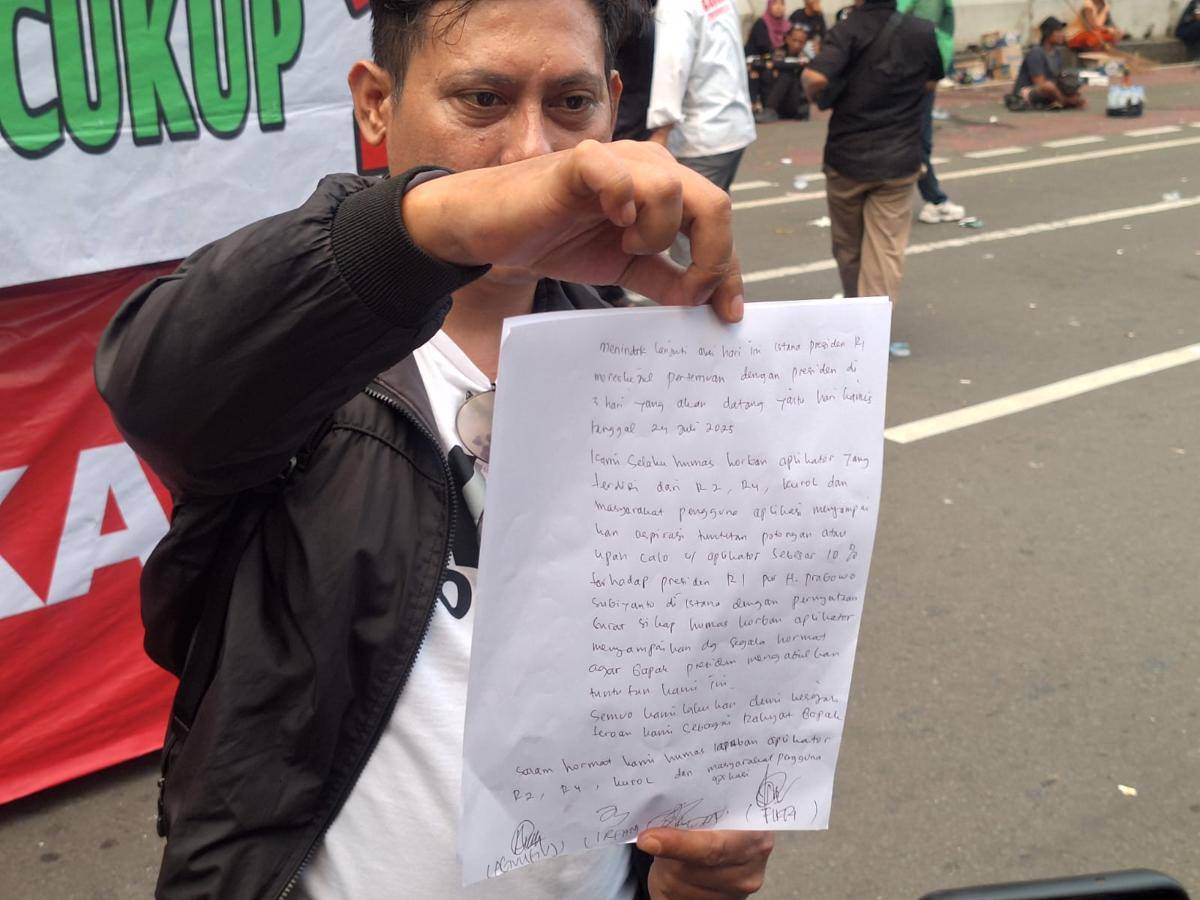 CUKUP
KA
Menindak lanjuti aksi hari ini istana presiden RI
pertemuan dengan presiden di
3 hari yang akan datang yaitu hari kamis
tanggal 24 Juli 2025
Kami selaku humas korban aplikator yang
terdiri dari R2, R4, kurol dan
masyarakat pengguna aplikasi menyampai
kan aspirasi tuntutan potongan atau
upah calo u/ aplikator sebesar 10 %
terhadap presiden RI pur H. Prabowo
Subiyanto di istana dengan pernyataan
surat sikap humas korban aplikator
menyampaikan dg segala hormat
agar Bapak presiden mengabulkan
tuntutan kami ini.
Semua kami lakukan demi kesejah
teraan kami sebagai Rakyat Bapak
Salam hormat kami humas korban aplikator
R2, R4, kurol dan masyarakat pengguna
aplikasi
(IRFAN)
(FIKRI)